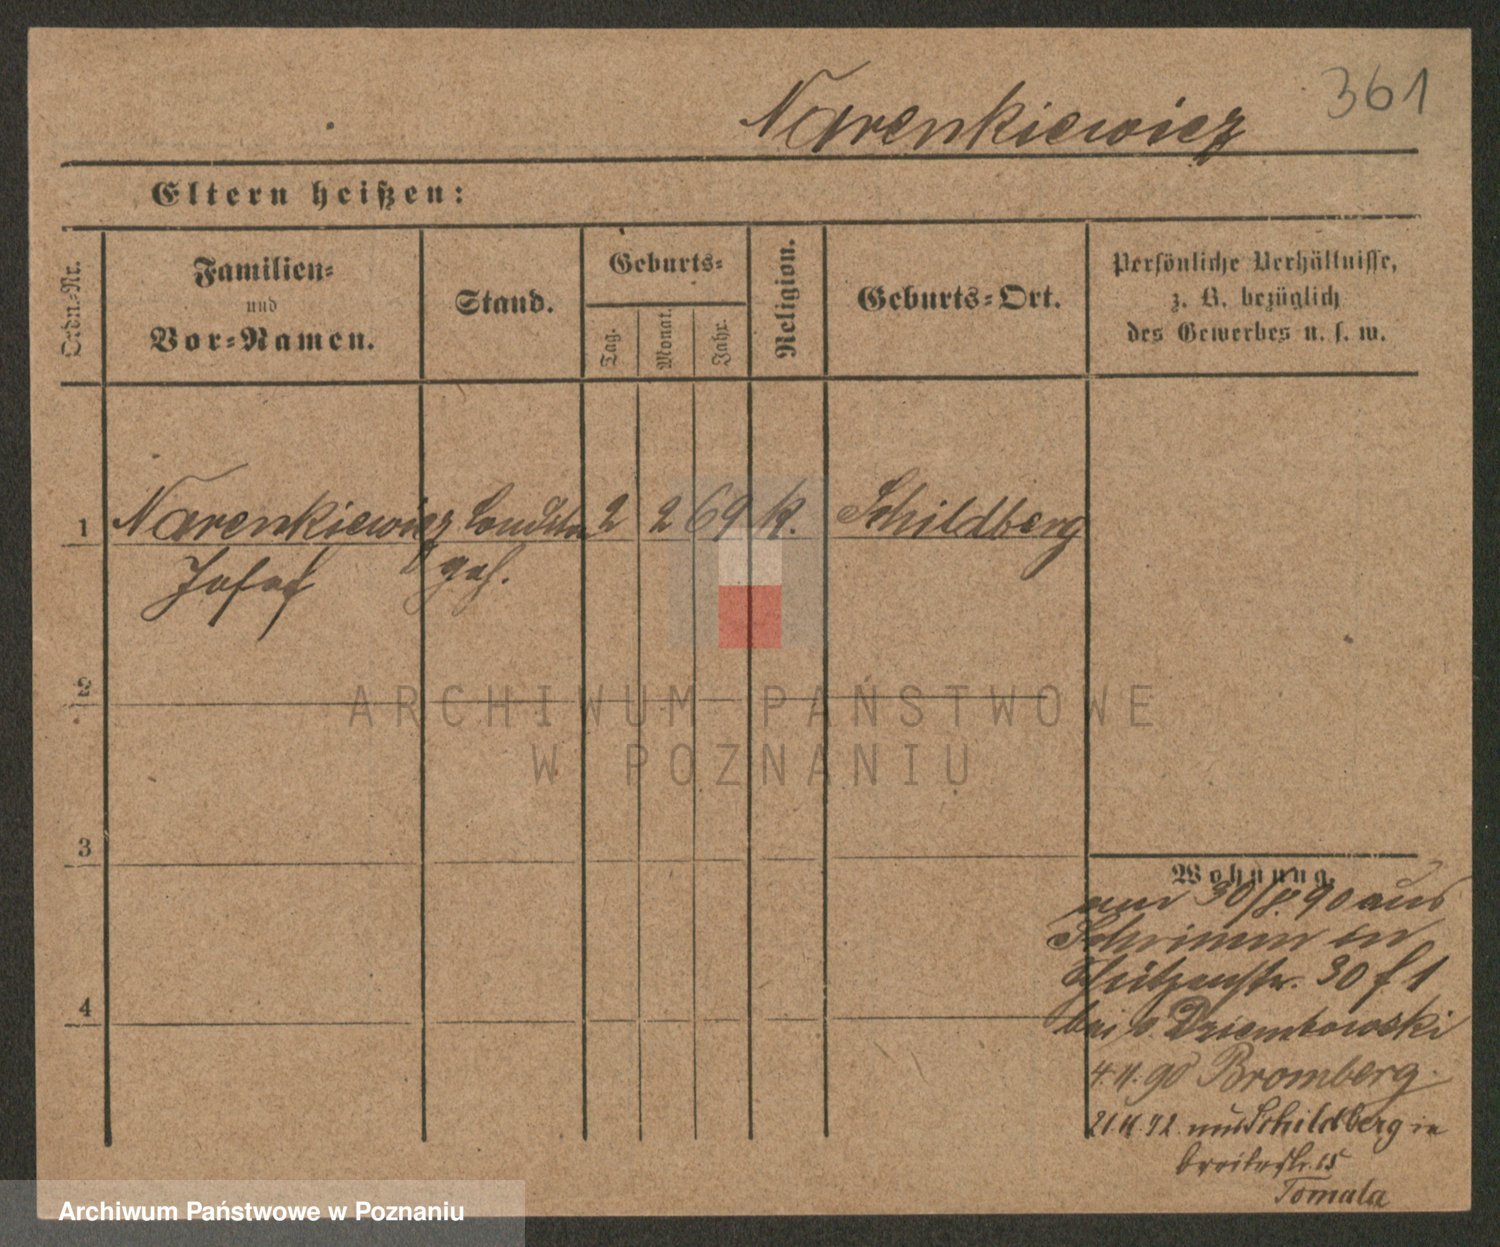 361
Narenkiewicz
Eltern heißen:
Ordn.-Nr.
Familien-
und
Vor-Namen.
Stand.
Geburts-
Tag.
Monat.
Jahr.
Religion.
Geburts-Ort.
Persönliche Verhältnisse,
z. B. bezüglich
des Gewerbes u. s. w.
1 Narenkiewicz Conditor 2 2 69 k. Schildberg
Josef geh.
2
3
4
Wohnung.
am 30/8 90 aus
Schrimm in
Schützenstr. 30 f 1
bei v. Dziembowski
4.11.90 Bromberg.
21.11.92. aus Schildberg in
Breitestr. 15
Tomala
ARCHIWUM PAŃSTWOWE
W POZNANIU
Archiwum Państwowe w Poznaniu